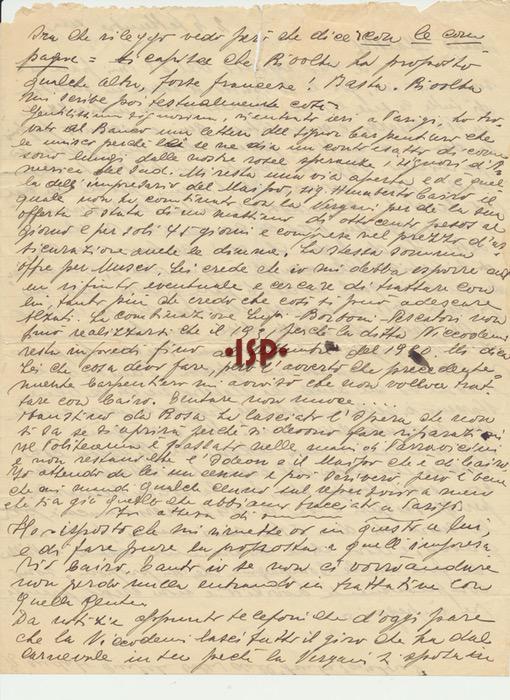 Ora che rileggo vedo però che dice con la com
pagna = si capisce che Rivolta ha proposto
qualche altra, forse francese! Basta. Rivolta
mi scrive poi testualmente così:
Gentilissima signorina, rientrato ieri a Parigi, ho tro
vato al Banco una lettera del signor Carpentiero che
le unisco perché lei se ne dia un conto esatto di come
sono lungi dalle nostre rosee speranze i signori d'A
merica del Sud. Mi resta una via aperta ed è quel
la dell'impresario del Maipo, sig. Humberto Cairo il
quale non ha combinato con la Vergani perché la sua
offerta è stata di un massimo di ottocento pesos al
giorno e per soli 45 giorni e compresa nel prezzo d'as
sicurazione anche la
offre per Musco. Lei crede che io mi debba esporre ad
un rifiuto eventuale e cercare di trattare con
lui tanto più che credo che così si può
La combinazione Lupi - Borboni - Pescatori non
può realizzarsi che il 19 perché la ditta Niccodemi
resta in piedi fino al del 1920. Mi dica
Lei che cosa devo fare, però l'avverto che precedente
mente Carpentiero mi avvisò che non voleva trat
tare con Cairo. Tentare non nuoce....
Faustino da Rosa ha lasciato l'Opera che non
si sa se si aprirà perché si devono fare riparazioni
nel Politeama è passato nelle mani di Parravicini
e non restano che l'Odeon e il Maipo che è di Cairo.
Io attendo da lei un cenno e poi scriverò, però è bene
che mi mandi qualche cenno sul repertorio a meno
che sia già quello che abbiamo tracciato a Parigi.
In attesa di
Ho risposto che mi rimettevo in questo a lui,
e di fare pure la proposta a quell'impresa
rio Cairo. Tanto io se non ci vorrò andare
non perdo nulla entrando in trattative con
quella gente.
Da notizie appunto telefoniche d'oggi pare
che la Niccodemi lasci tutto il giro che ha dal
carnevale in su perché la Vergani si sposa in
ISP